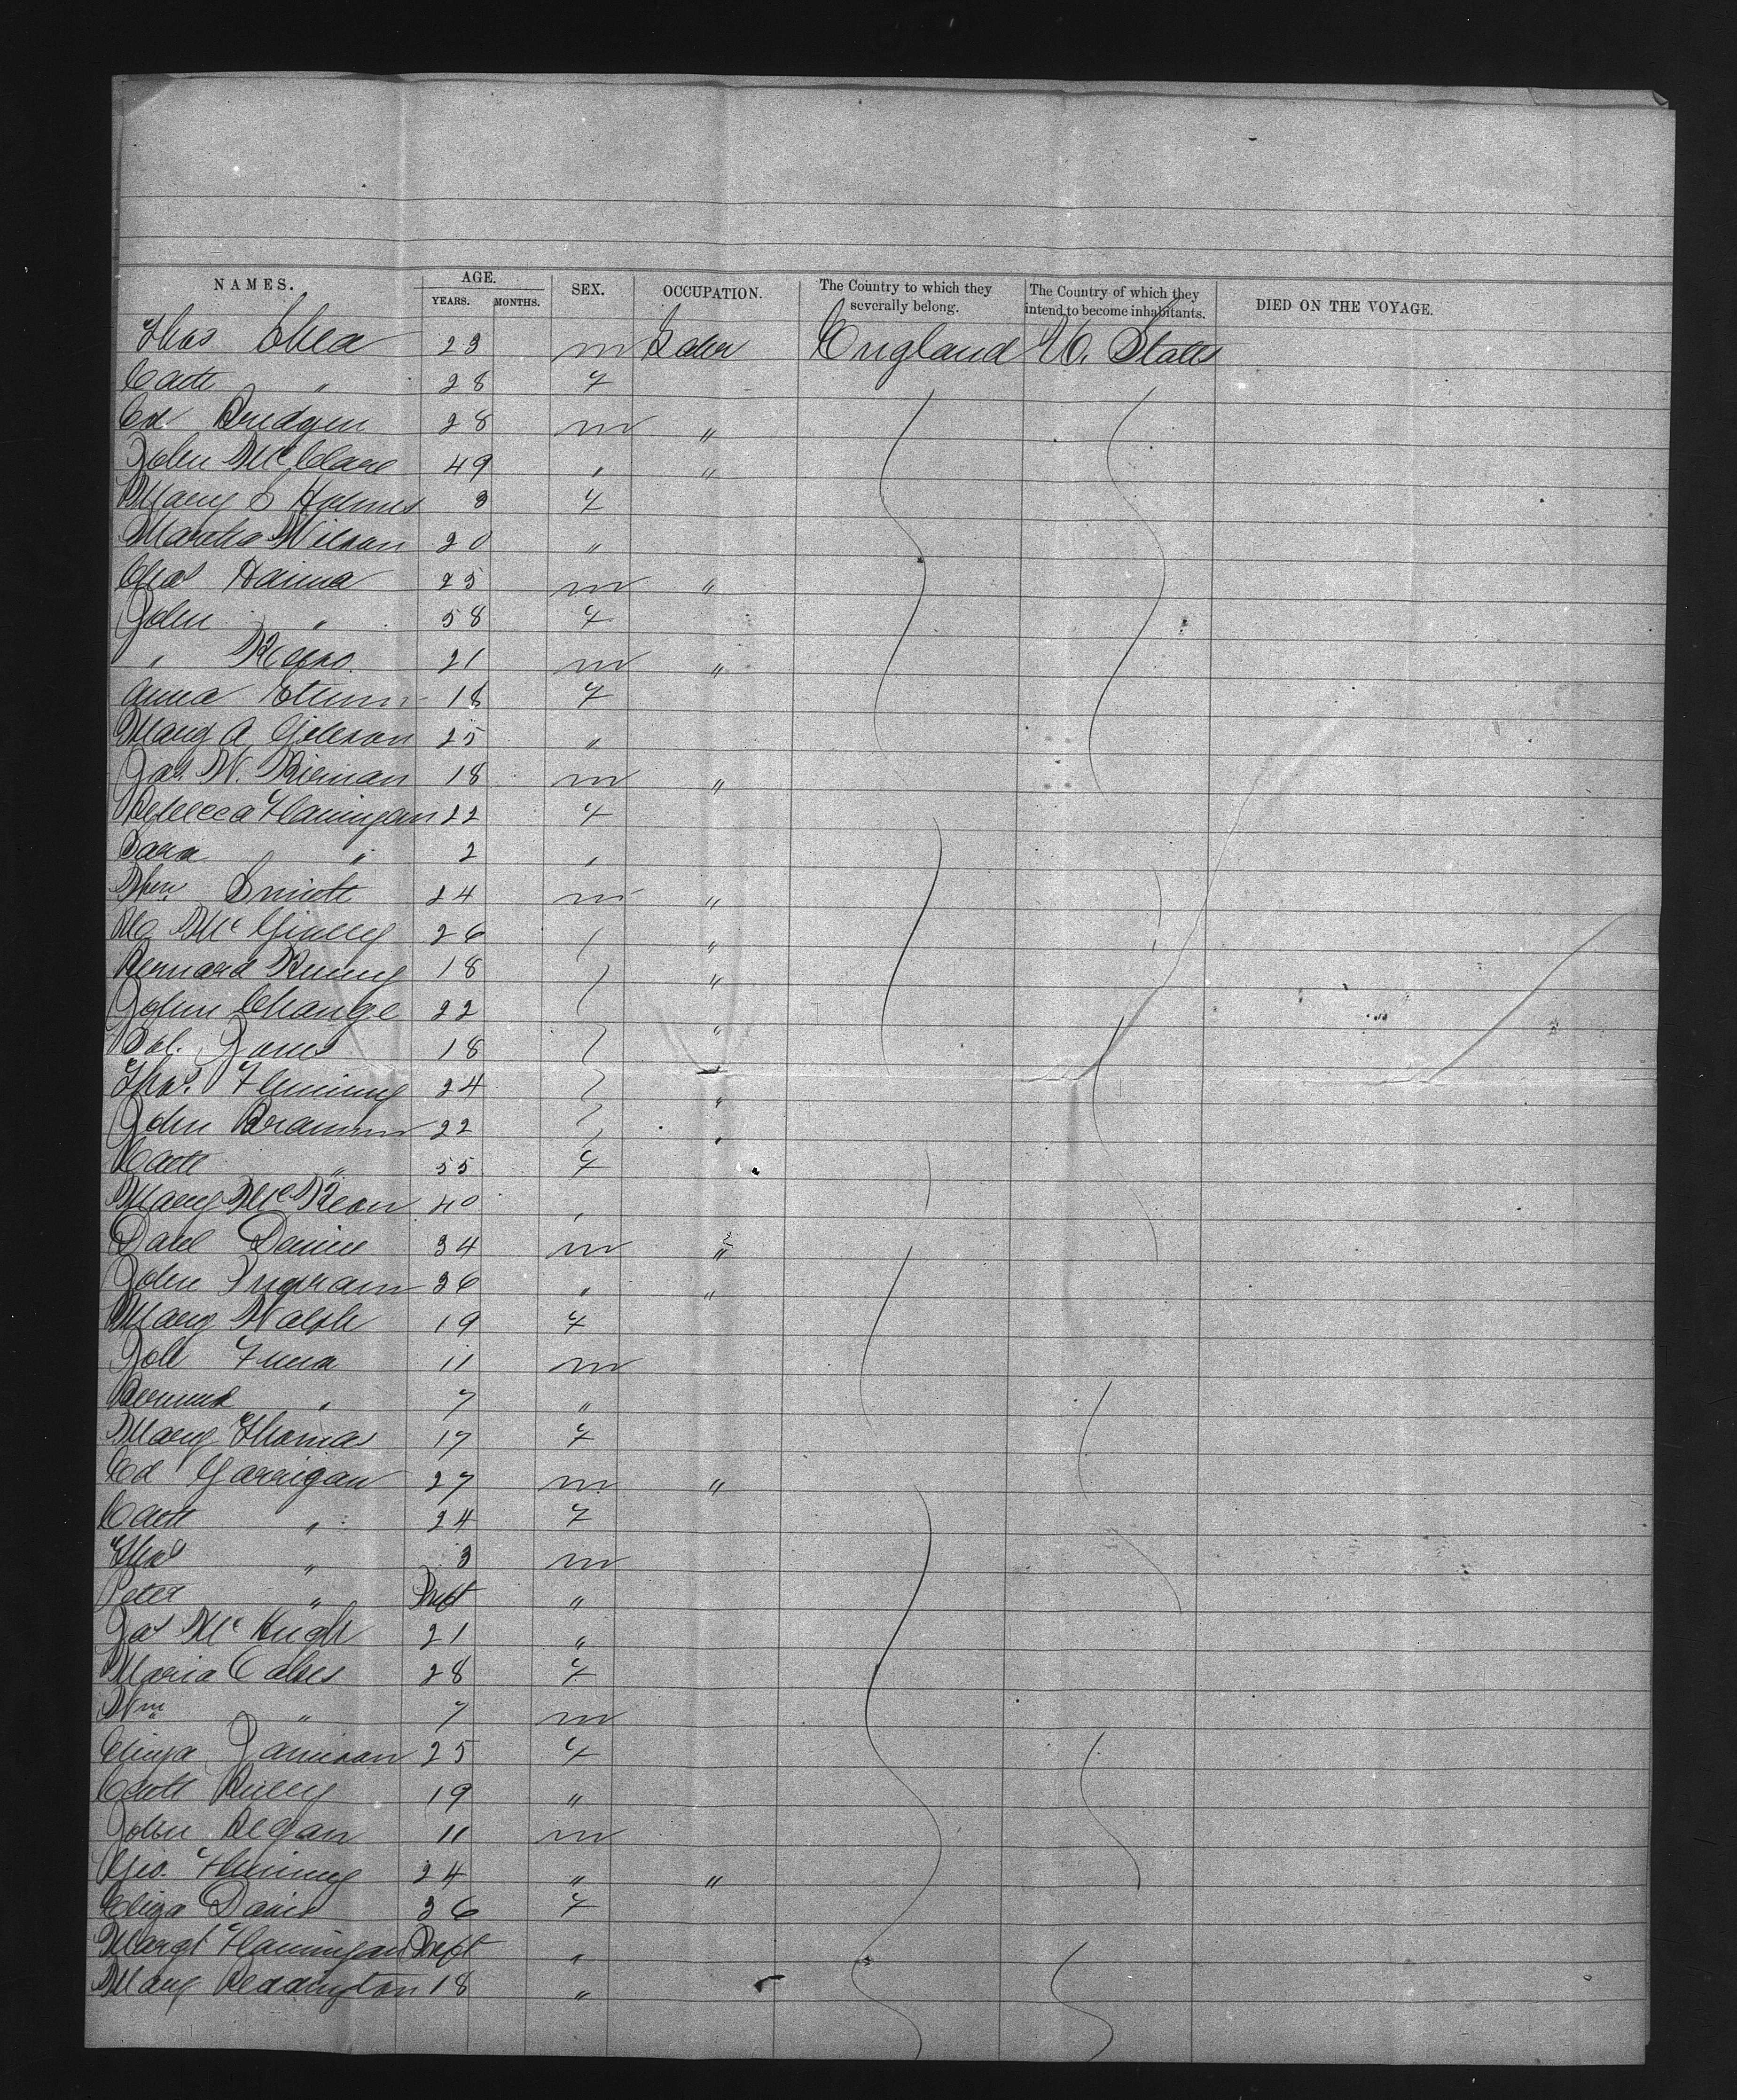 NAMES. AGE. YEARS. MONTHS. SEX. OCCUPATION. The Country to which they severally belong. The Country of which they intend to become inhabitants. DIED ON THE VOYAGE.
Thos Shea 23 m Labr England U. States
Cath " 28 f
Ed. Bridgen 28 m "
John McClare 49 " "
Mary S Holmes 3 f
Martha Wilson 20 "
Chas Hanna 25 m "
John " 58 f
" 21 m "
Anna 18 f
Mary A Gibson 25 "
Jas. W. Kiernan 18 m "
Rebecca Flannigan 22 f
Sara " 2 "
Wm Smith 24 m "
McGinley 26 "
Bernard Kenny 18 "
John Change 22 "
Jones 18
Thos. Flemming 24 "
John Brannan 22 "
Cath " 55 f
Mary McKeon 40 "
Danl Daniel 34 m "
John Ingram 26 " "
Mary Walsh 19 f
11 m
Bernard " 7 "
Mary Thomas 17 f
Ed Garrigan 27 m "
Cath " 24 f
Thos " 3 m
Peter " Inft "
Jas McHugh 21 "
Maria Cabes 28 f
Wm " 7 m
Eliza Jamison 25 f
Cath Reilly 19 "
John Regan 11 m
Geo. Flemming 24 " "
Eliza Davis 36 f
Margt Flannigan Inft "
Mary Reddington 18 "